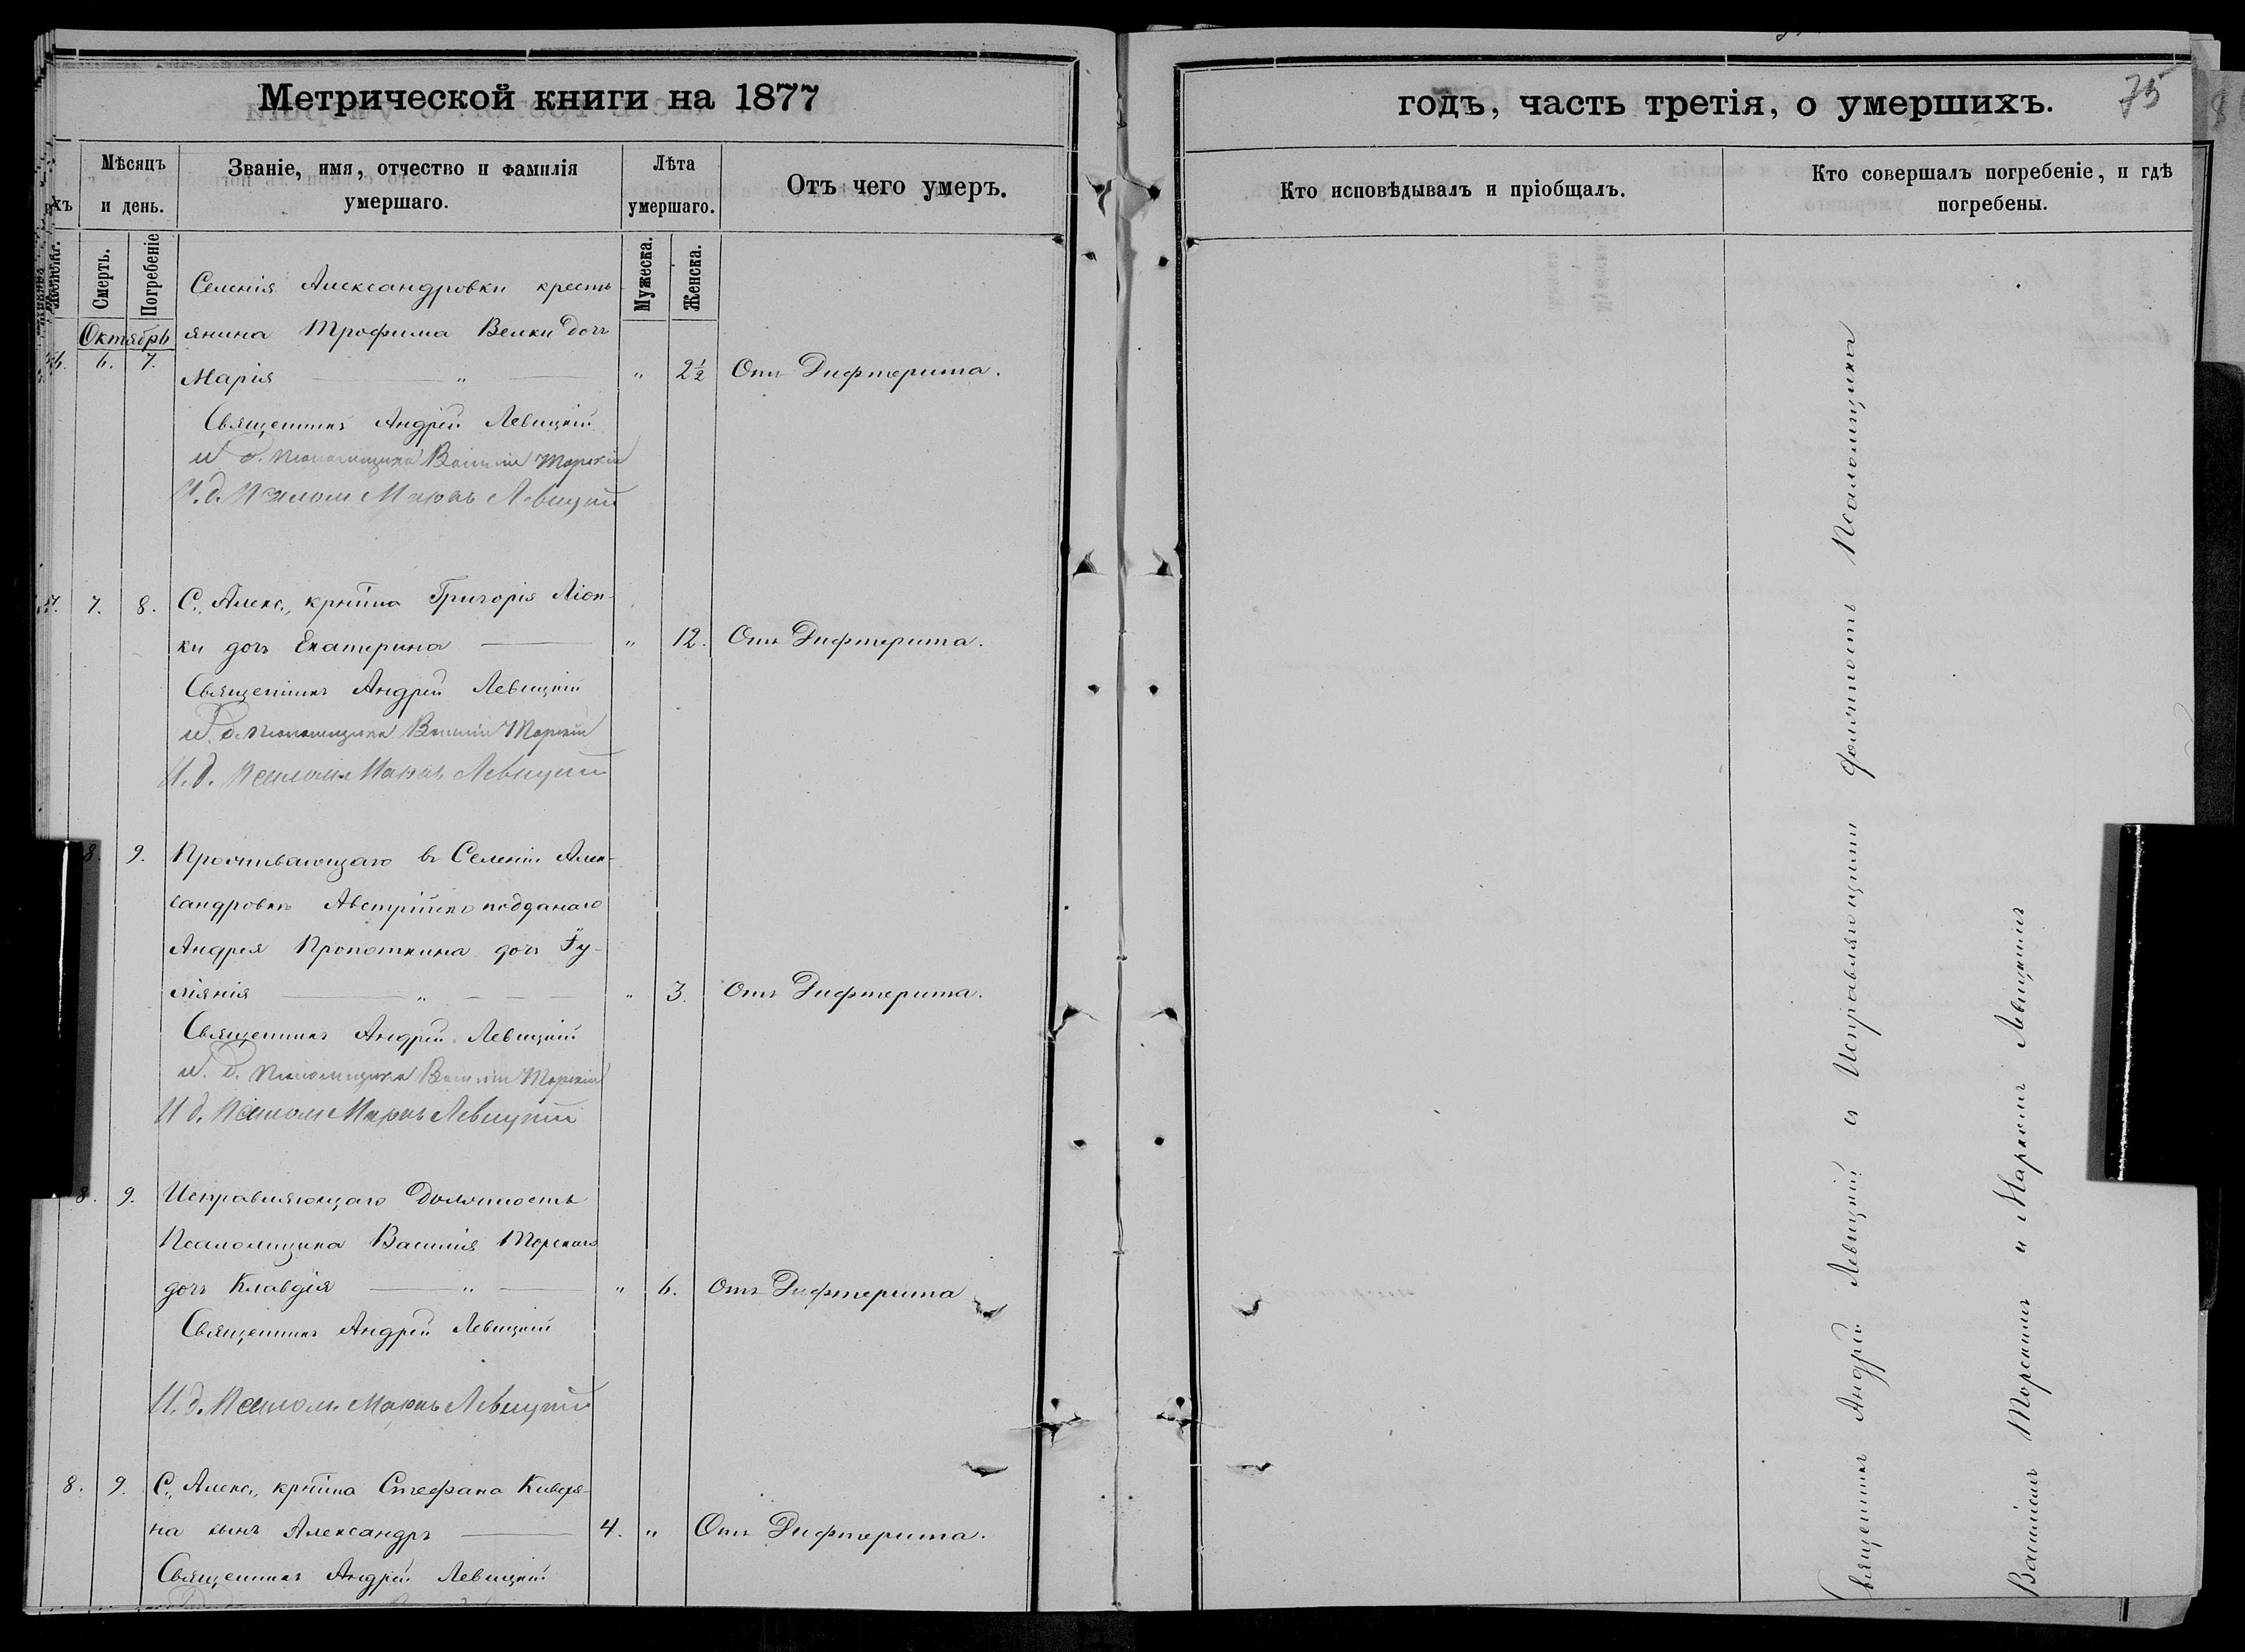 Метрической книги на 1877
годъ, часть третія, о умершихъ.
75
Мѣсяцъ и день.
Званіе, имя, отчество и фамилія умершаго.
Лѣта умершаго.
Отъ чего умеръ.
Кто исповѣдывалъ и пріобщалъ.
Кто совершалъ погребеніе, и гдѣ погребены.
Женска.
Смерть.
Погребеніе
Мужеска.
Женска.
Октябрь
Селенія Александровки кресть
янина Трофима Велки дочь
6. 7. Марія — „ — „ 2½ Отъ Дифтерита.
Священникъ Андрей Левицкій
И. д. псаломщика Василій Торскій
И. д. Псалом Маркъ Левицкій
7. 8. С., Алекс., крнина Григорія Ліон-
ки дочь Екатерина — „ 12. Отъ Дифтерита.
Священникъ Андрей Левицкій
И. д. псаломщика Василій Торскій
И. д. Псалом. Маркъ Левицкій
8. 9. Проживающаго въ Селеніи Алек-
сандровкѣ Австрійско подданаго
Андрея Кропоткина дочь Іу-
ліянія — „ — — — „ 3. Отъ Дифтерита.
Священникъ Андрей Левицкій
И. д. Псаломщика Василій Торскій
И д. Псалом Маркъ Левицкій
8. 9. Исправляющаго Должность
Псаломщика Василія Торскаго
дочь Клавдія — „ — „ 6. Отъ Дифтерита
Священникъ Андрей Левицкій
И. д. Псалом. Маркъ Левицкій
8. 9. С., Алекс., крнина Стефана
на сынъ Александръ — 4. „ Отъ Дифтерита.
Священникъ Андрей Левицкій
Священникъ Андрей Левицкій съ Исправляющими должность Псаломщика
Василіемъ Торскимъ и Маркомъ Левицкимъ